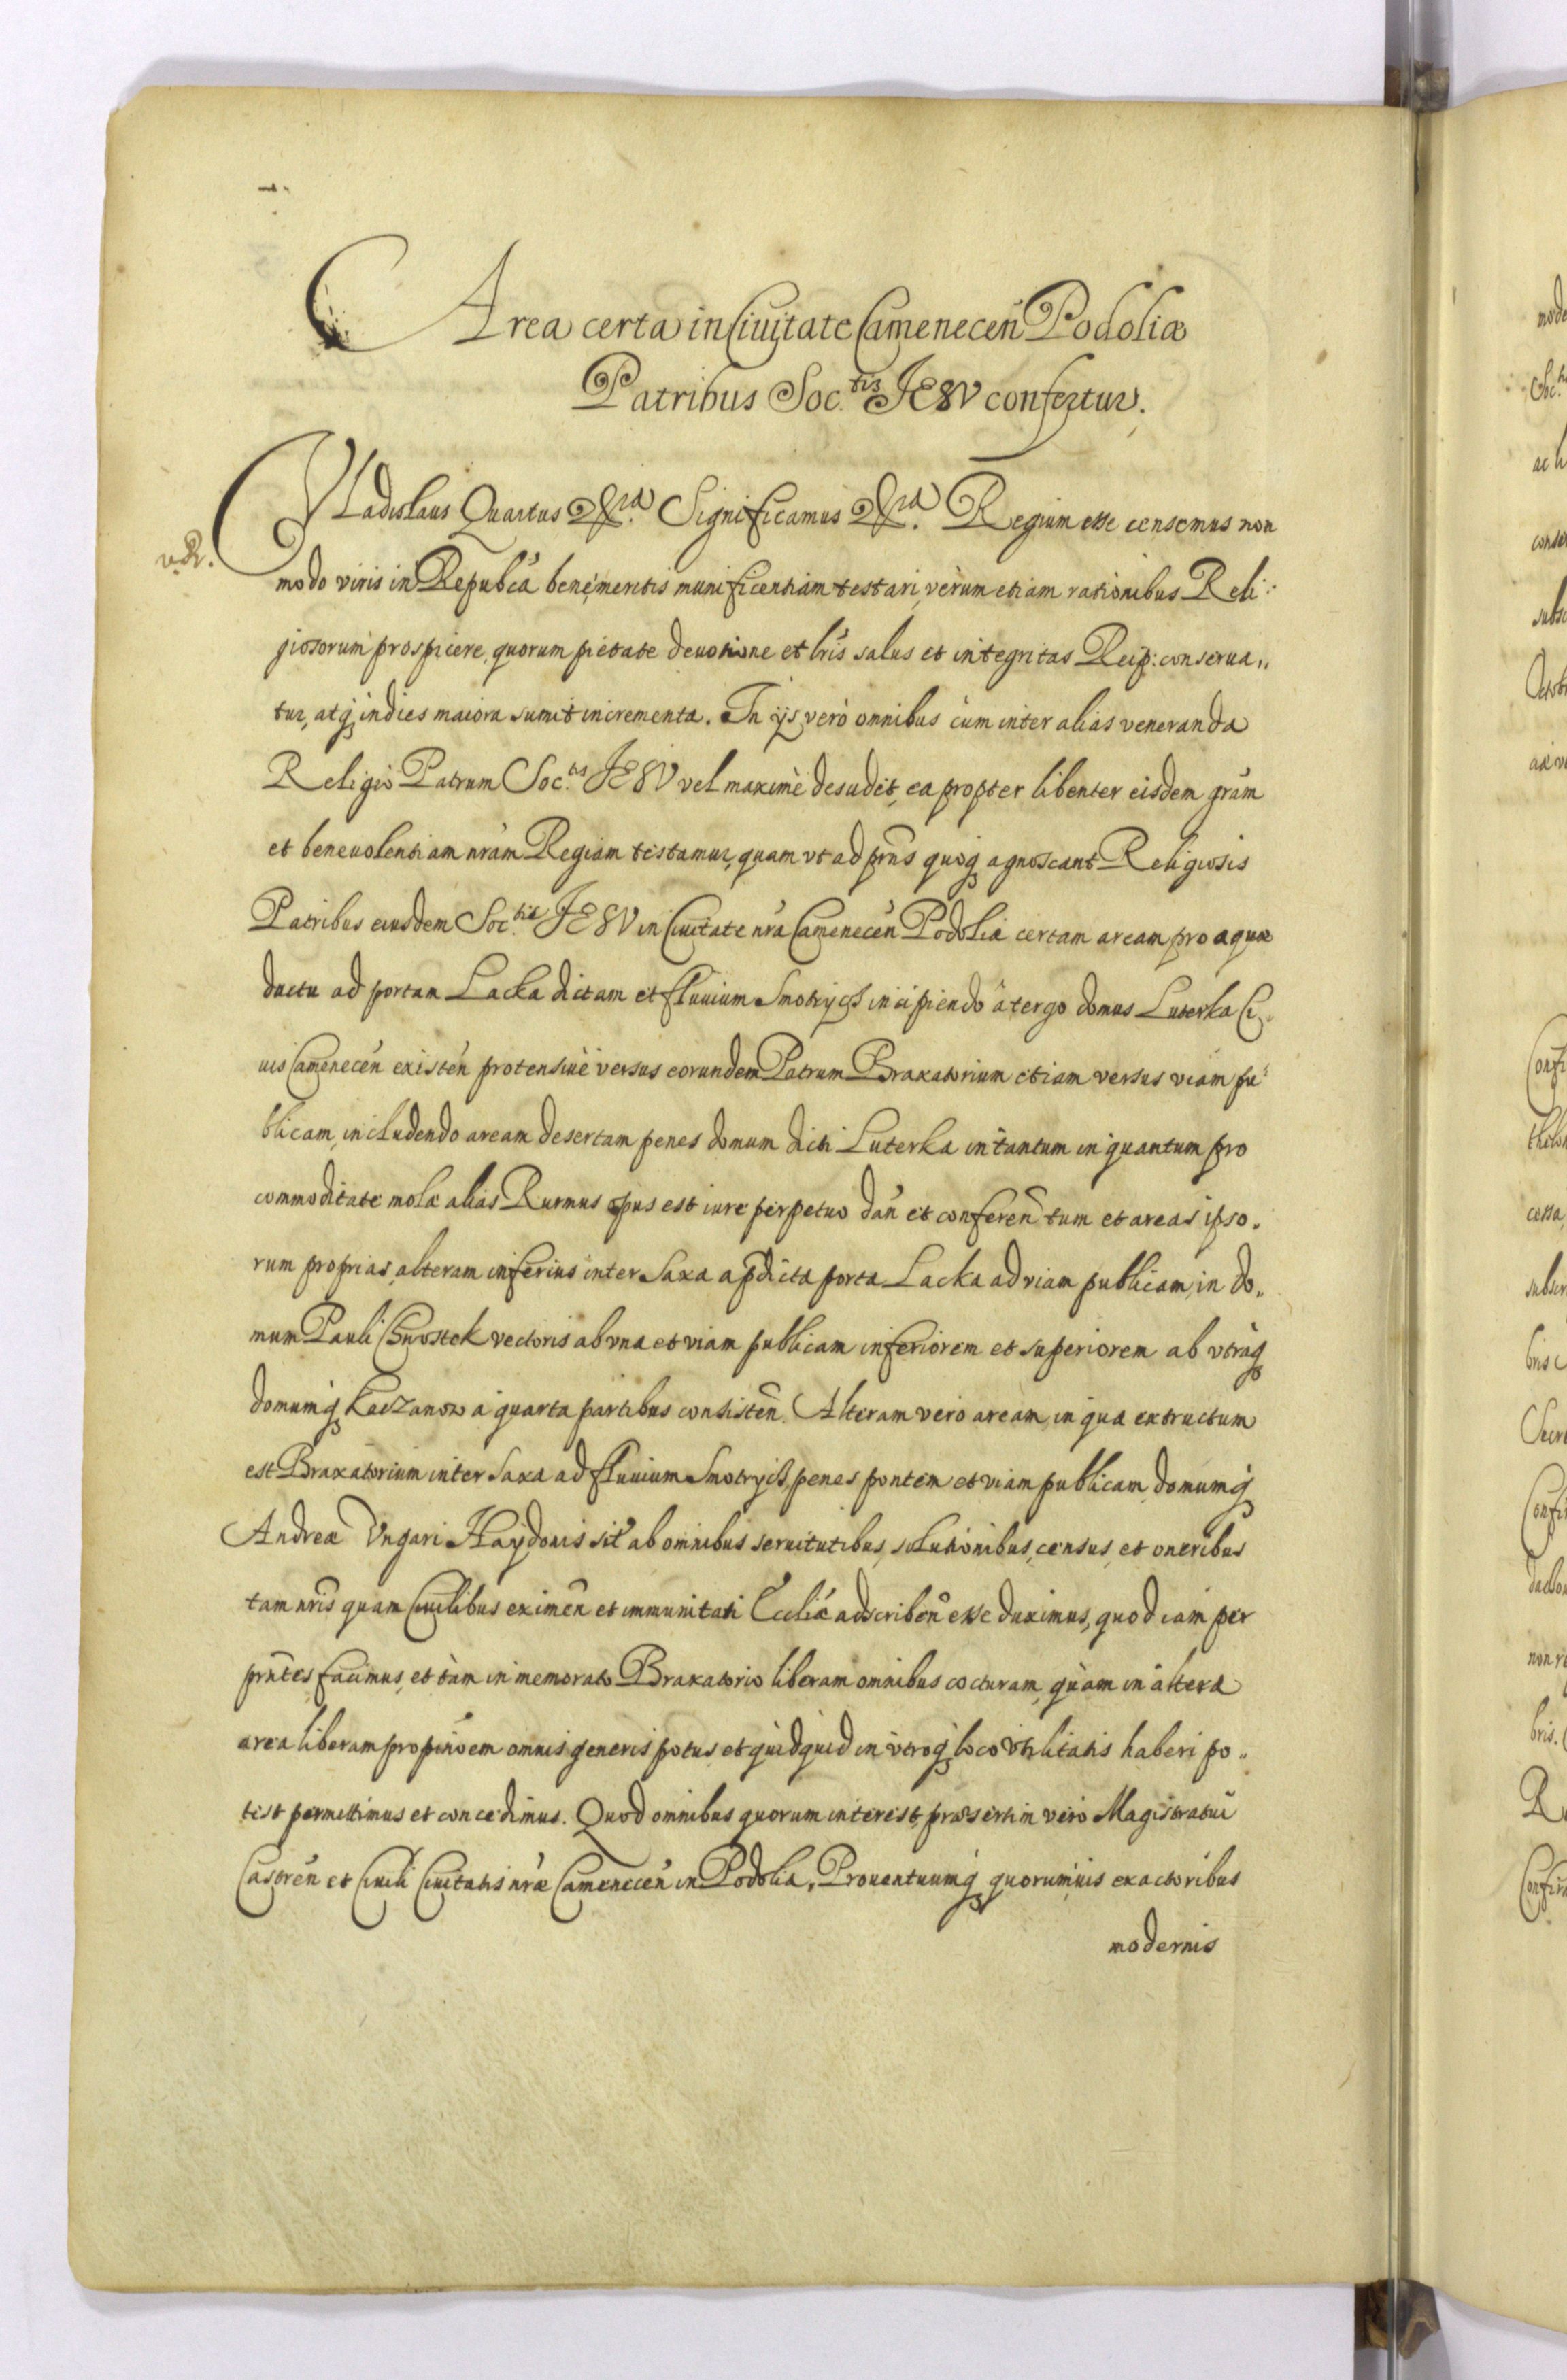 Area certa in Ciuitate Camenecen̄ Podoliæ
Patribus Soc.tis JESV confertur.
VLadislaus Quartus &c.ra Significamus &c.ra Regium esse censemus non
modo viris in Repub̃ca benemeritis munificentiam testari, verùm etiam rationibus Reli:
giosorum prospicere, quorum pietate deuotione et lr̃is salus et integritas Reip: conserua„
tur, atq̃ indies maiora sumit incrementa. In ijs verò omnibus cùm inter alias veneranda
Religio Patrum Soc.tis JESV vel maximè desudet, ea propter libenter eisdem gr̃am
et beneuolentiam nr̃am Regiam testamur, quam vt ad pr̃ns quoq̃ agnoscant Religiosis
Patribus eiusdem Soc.tis JESV in Ciuitate nr̃a Camenecen̄ Podoliæ certam aream pro aquæ
ductu ad portam Lacka dictam et fluuium Smotrycz incipiendo à tergo domus Luterka Ci„
uis Camenecen̄ existen̄ protensiuè versus eorundem Patrum Braxatorium etiam versus viam pu„
blicam, includendo aream desertam penes domum dicti Luterka in tantum in quantum pro
commoditate molæ alias Rurmus opus est iure perpetuo dan̄ et conferen̄ tum et areas ipso„
rum proprias, alteram inferius inter Saxa a p̃dicta porta Lacka ad viam publicam, in do„
mum Pauli Chwostek vectoris ab vna et viam publicam inferiorem et superiorem ab vtraq̃
domumq̃ Kaczanow à quarta partibus consisten̄. Alteram vero aream, in qua extructum
est Braxatorium inter Saxa ad fluuium Smotrycz, penes pontem et viam publicam, domumq̃
Andreæ Vngari Haydonis sit̃ ab omnibus seruitutibus, solutionibus, census, et oneribus
tam nr̃is quam Ciuilibus eximen̄ et immunitati Eccl̃iæ adscriben̄ esse duximus, quod iam per
pr̃ntes facimus, et tàm in memorato Braxatorio liberam omnibus cocturam, quàm in altera
area liberam propinõem omnis generis potus, et quidquid in vtroq̃ loco vtilitatis haberi po„
test permittimus et concedimus. Quod omnibus quorum interest, præsertim vero Magistratui
Castren̄ et Ciuili Ciuitatis nr̃æ Camenecen̄ in Podolia, Prouentuumq̃ quorumuis exactoribus
modernis